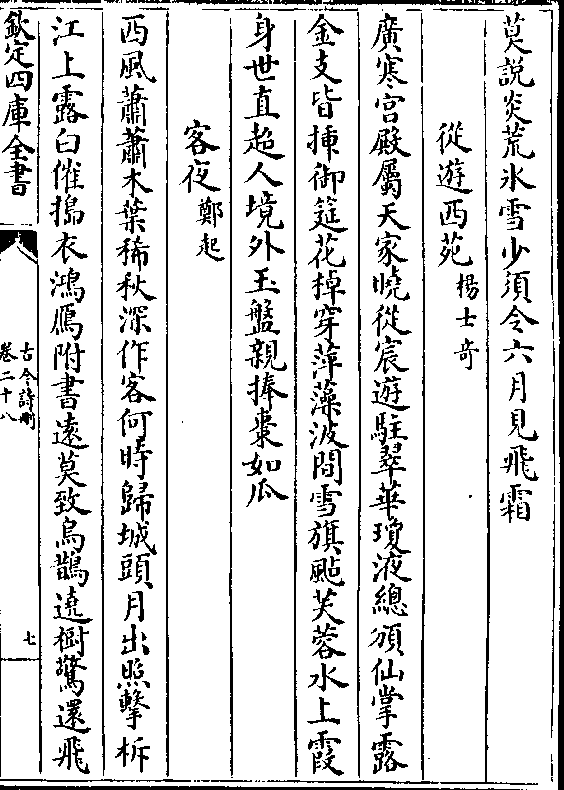 莫説炎荒氷雪少須令六月見飛霜
從遊西苑楊士奇
廣寒宮殿屬天家曉從宸遊駐翠華瓊液總頒仙掌露
金支皆揷御筵花棹穿萍藻波間雪旗颭芙蓉水上霞
身世直超人境外玉盤親捧棗如瓜
客夜鄭起
西風蕭蕭木葉稀秋深作客何時歸城頭月出照擊柝
江上露白催搗衣鴻鴈附書遠莫致烏鵲遶樹驚還飛
欽定四庫全書
古今詩刪
卷二十八
七